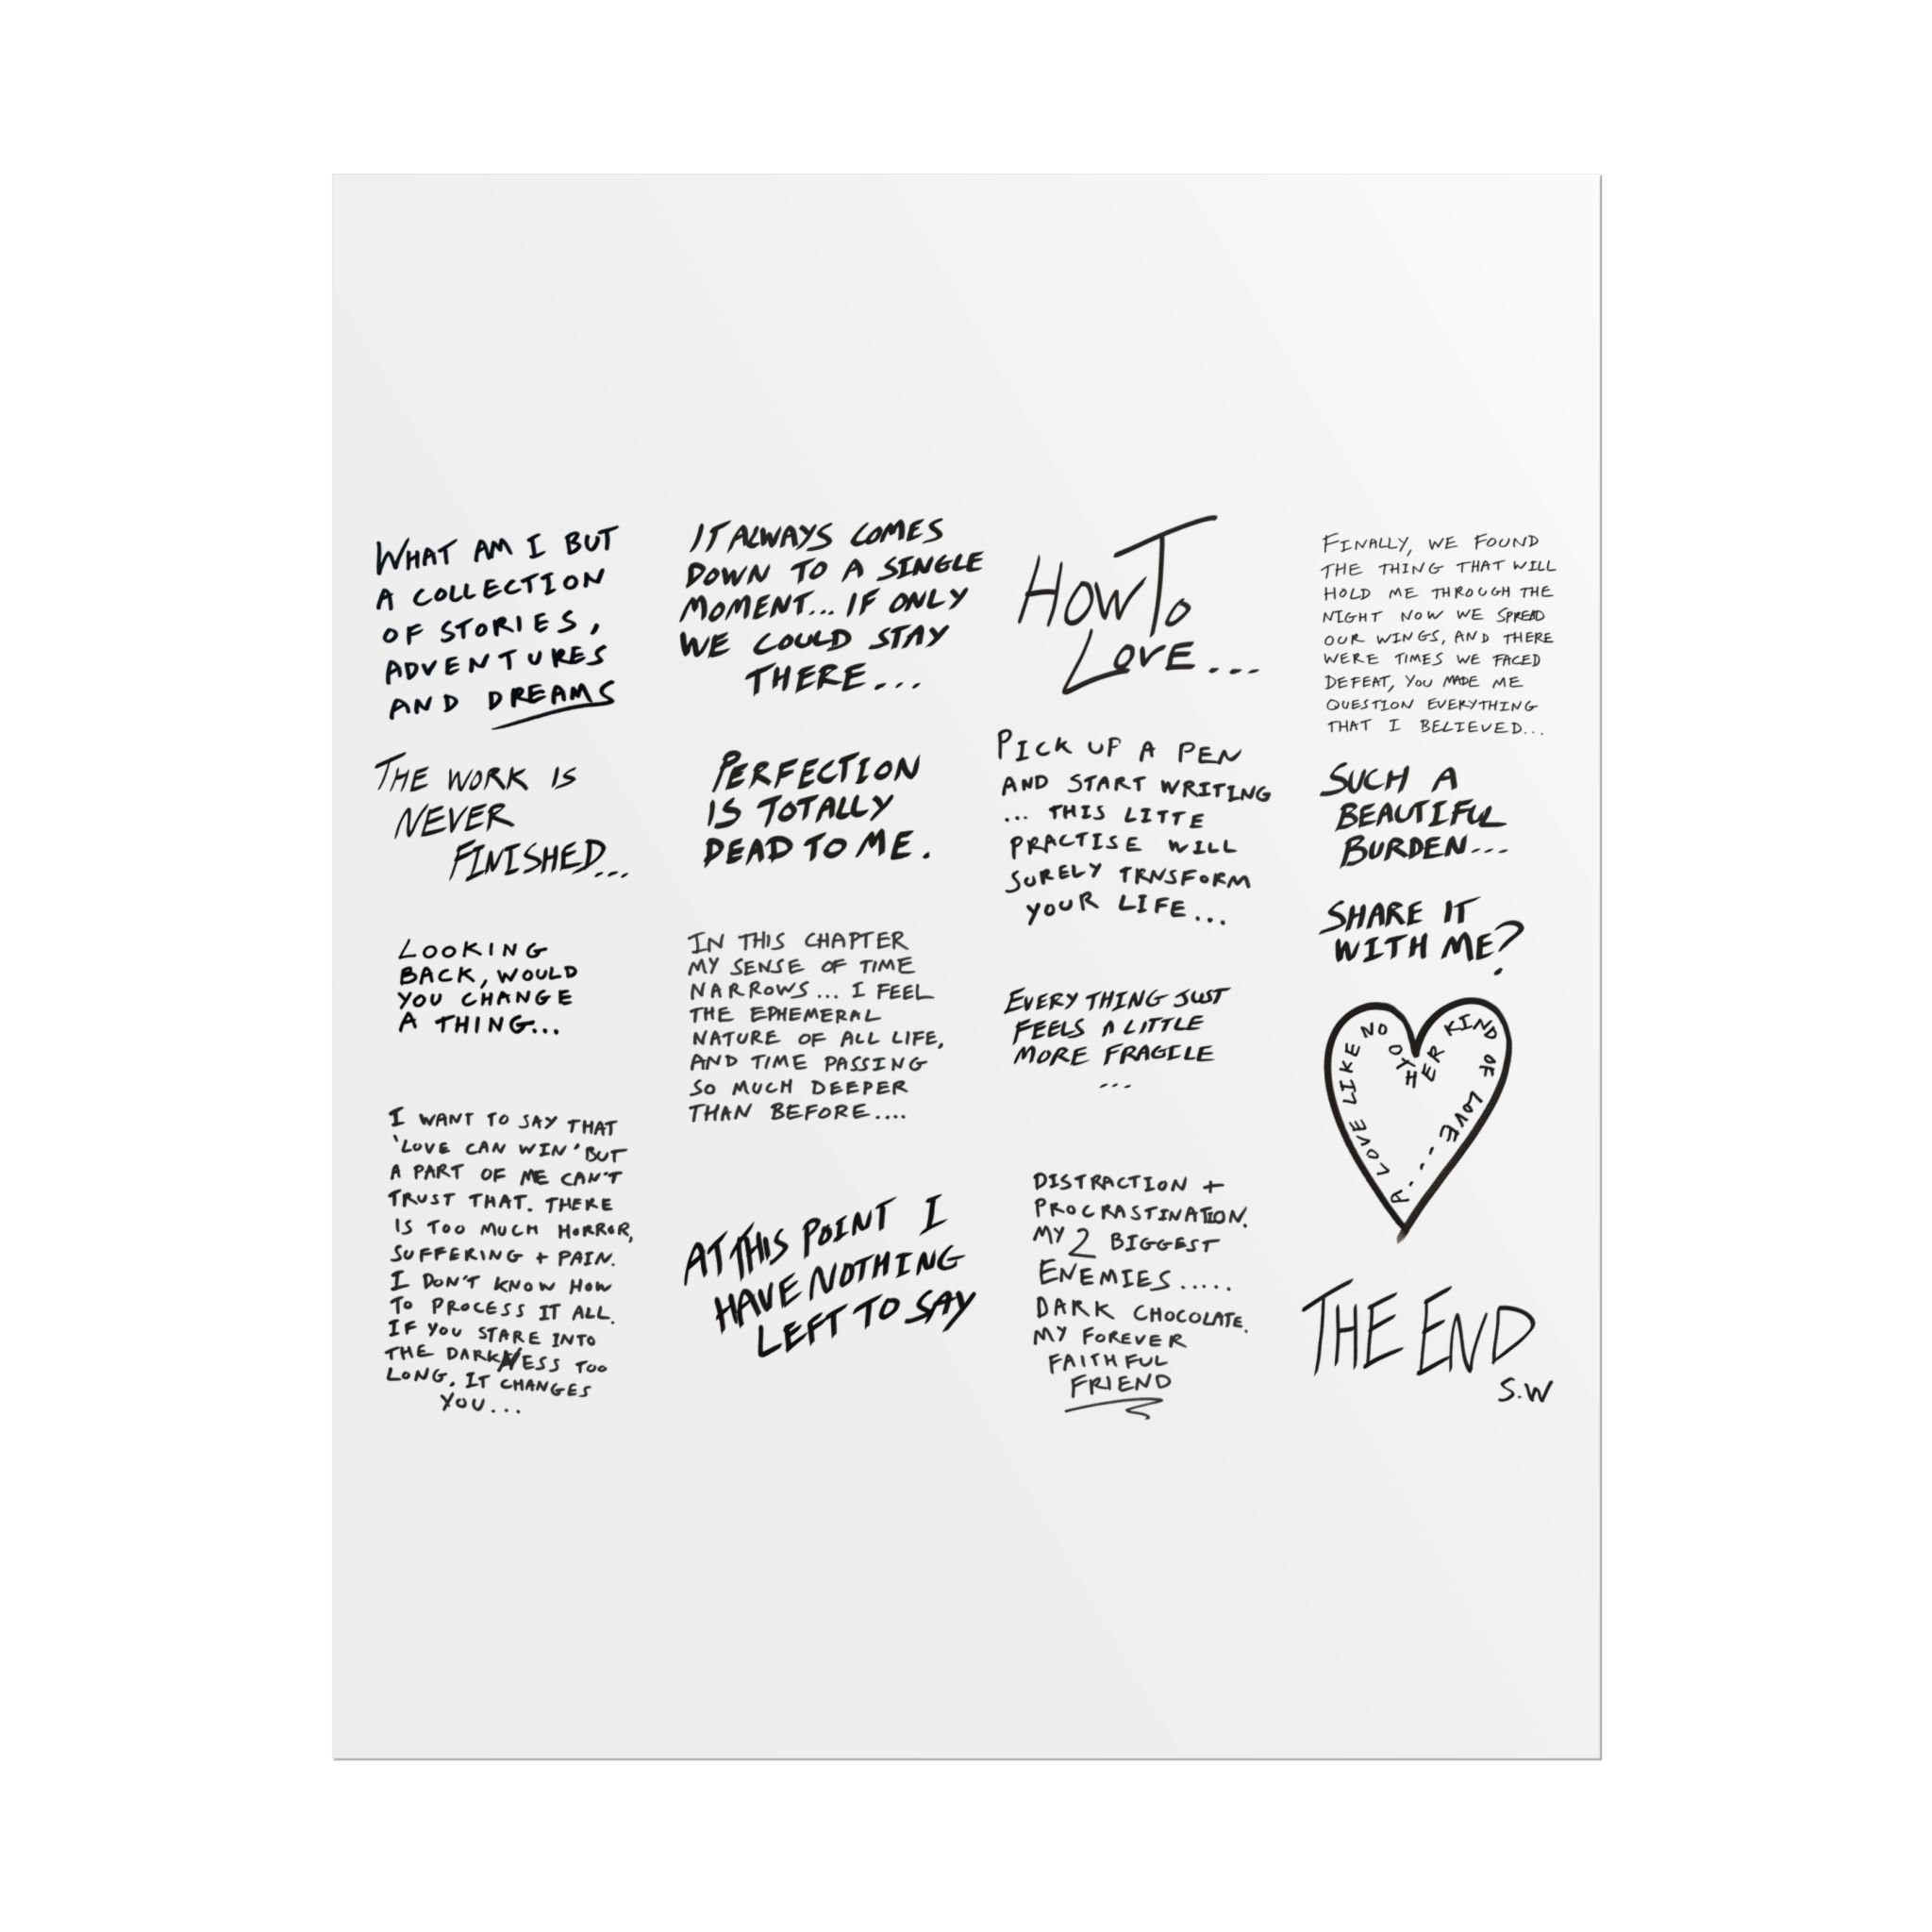 WHAT AM I BUT
A COLLECTION
OF STORIES,
ADVENTURES
AND DREAMS
THE WORK IS
NEVER
FINISHED...
LOOKING
BACK, WOULD
YOU CHANGE
A THING...
I WANT TO SAY THAT
'LOVE CAN WIN' BUT
A PART OF ME CAN'T
TRUST THAT. THERE
IS TOO MUCH HORROR,
SUFFERING + PAIN.
I DON'T KNOW HOW
TO PROCESS IT ALL.
IF YOU STARE INTO
THE DARKNESS TOO
LONG, IT CHANGES
YOU...
IT ALWAYS COMES
DOWN TO A SINGLE
MOMENT... IF ONLY
WE COULD STAY
THERE...
PERFECTION
IS TOTALLY
DEAD TO ME.
IN THIS CHAPTER
MY SENSE OF TIME
NARROWS... I FEEL
THE EPHEMERAL
NATURE OF ALL LIFE,
AND TIME PASSING
SO MUCH DEEPER
THAN BEFORE....
AT THIS POINT I
HAVE NOTHING
LEFT TO SAY
HOW TO
LOVE...
PICK UP A PEN
AND START WRITING
... THIS LITTE
PRACTISE WILL
SURELY TRNSFORM
YOUR LIFE...
EVERY THING JUST
FEELS A LITTLE
MORE FRAGILE
...
DISTRACTION +
PROCRASTINATION.
MY 2 BIGGEST
ENEMIES.....
DARK CHOCOLATE.
MY FOREVER
FAITHFUL
FRIEND
FINALLY, WE FOUND
THE THING THAT WILL
HOLD ME THROUGH THE
NIGHT NOW WE SPREAD
OUR WINGS, AND THERE
WERE TIMES WE FACED
DEFEAT, YOU MADE ME
QUESTION EVERYTHING
THAT I BELIEVED...
SUCH A
BEAUTIFUL
BURDEN...
SHARE IT
WITH ME?
A LOVE LIKE NO OTHER KIND OF LOVE....
THE END
S.W